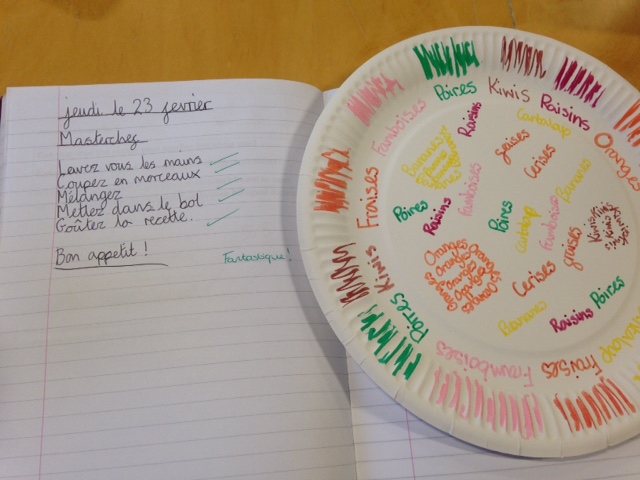 jeudi le 23 fevrier
Masterchef
Lavez vous les mains
Coupez en morceaux
Mélangez
Mettez dans le bol
Goûtez la recette.
Bon appetit !
Fantastique!
Poires
Kiwis
Raisins
Oranges
Framboises
Fraises
Kiwis
Poires
Framboises
Fraises
Raisins
Cantaloup
Bananes
Cerises
Framboises
Bananes
Poires
Raisins
Poires
Cantaloup
Framboises
Kiwis
Oranges
Oranges
Oranges
Cerises
Bananes
Raisins
Poires